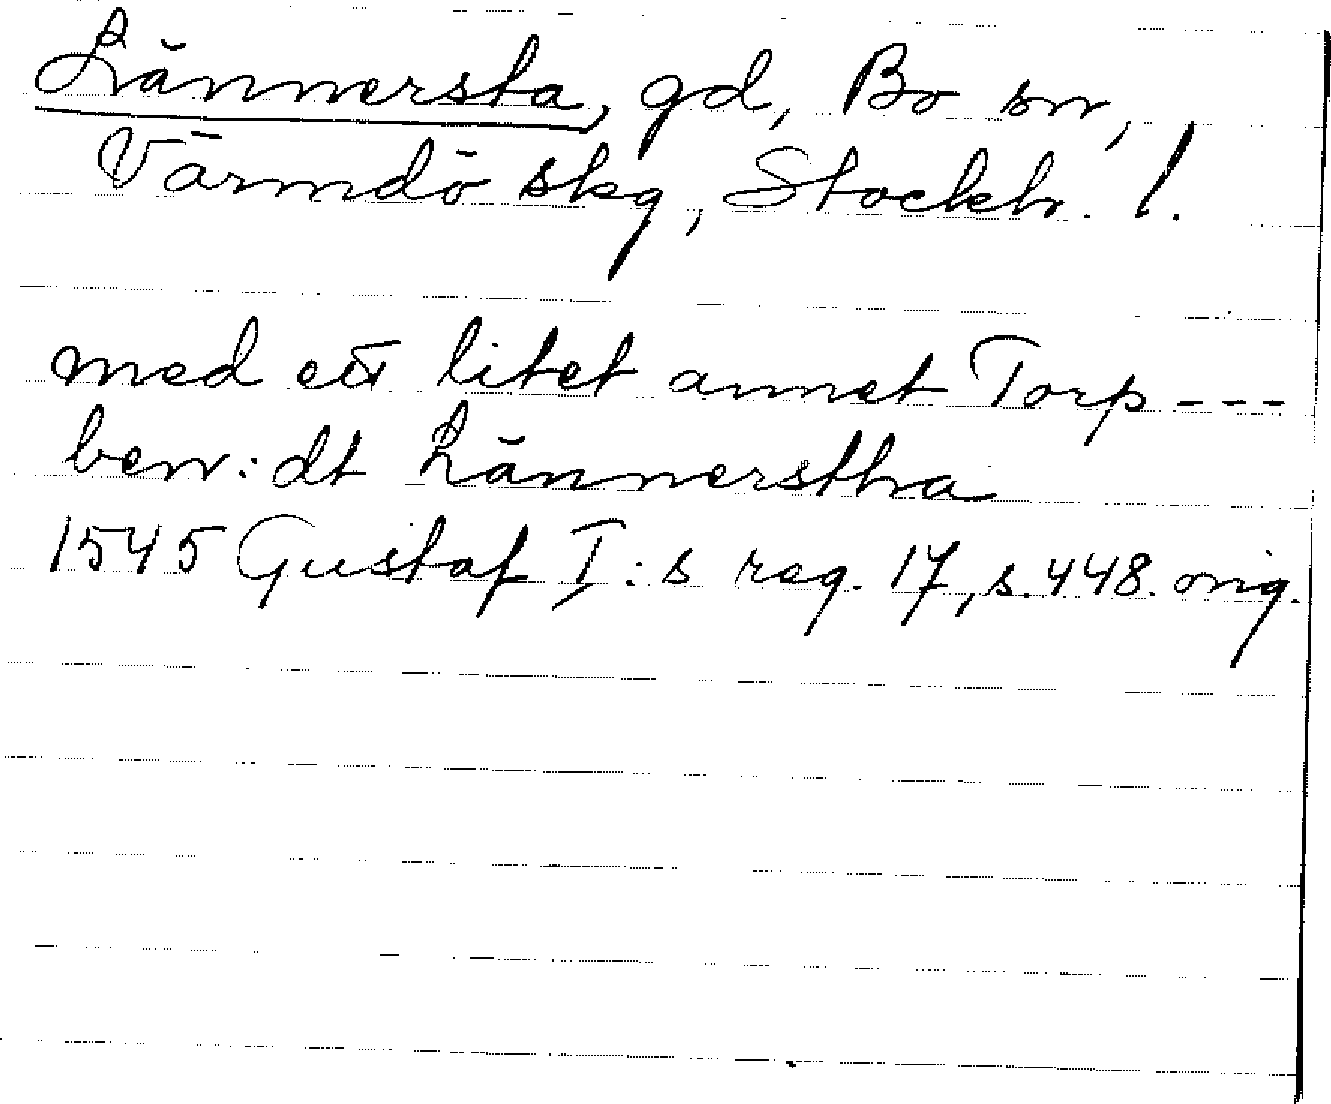 Lännersta, gd, Bo sn,
Värmdö skg, Stockh. l.
med ett litet annet Torp ---
ben:dt Lännerstha
1545 Gustaf I:s reg. 17, s. 448. orig.